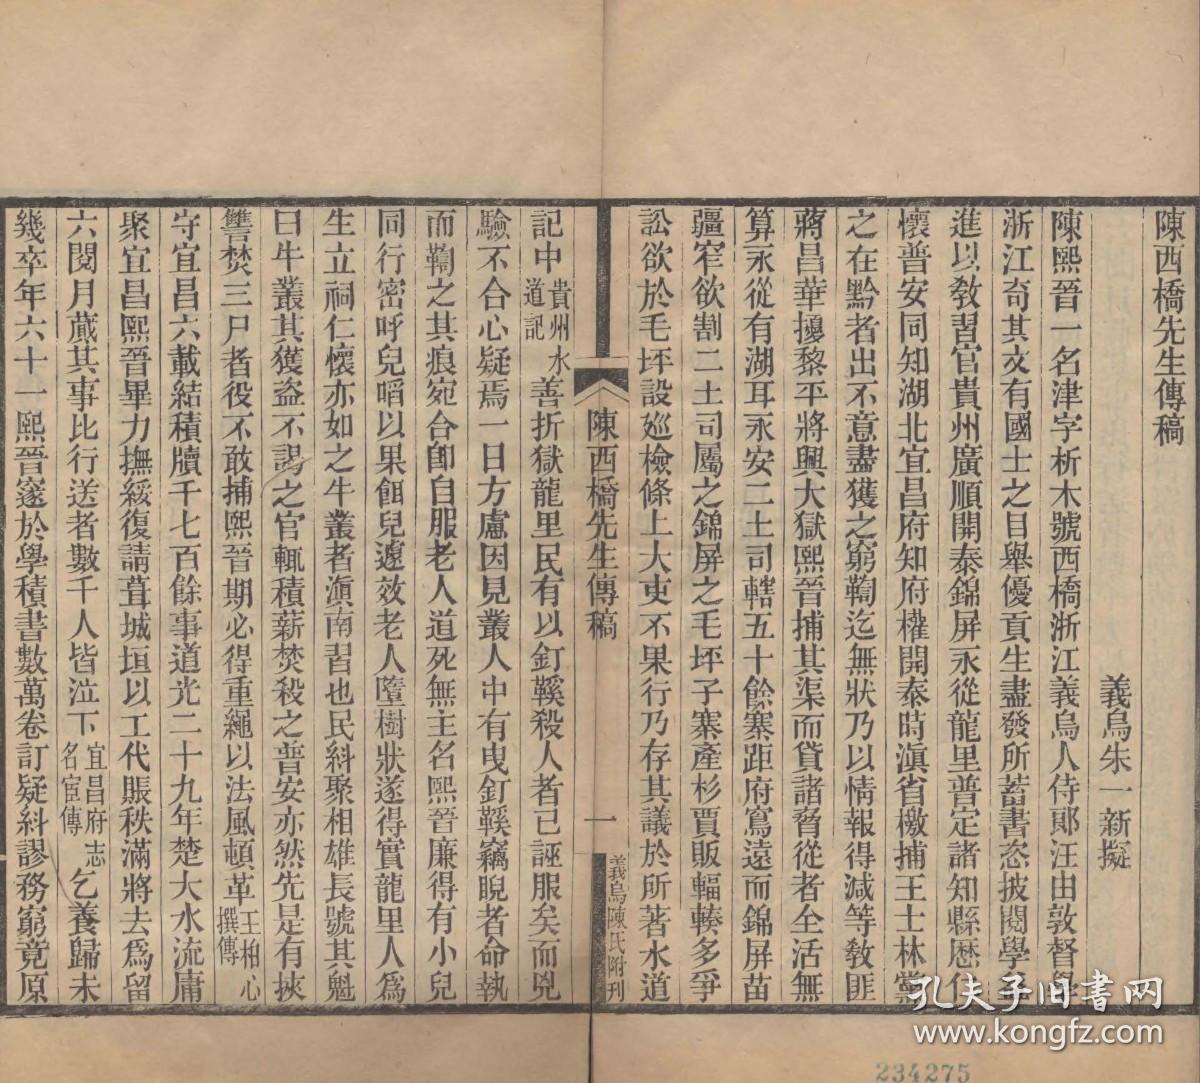 陳西橋先生傳稿
義烏朱一新擬
陳熙晉一名津字析木號西橋浙江義烏人侍郞汪由敦督學
浙江奇其文有國士之目舉優貢生盡發所蓄書恣披閱學
進以敎習官貴州廣順開泰錦屏永從龍里普定諸知縣歷仁
懷普安同知湖北宜昌府知府權開泰時滇省檄捕王士林黨
之在黔者出不意盡獲之窮鞫迄無狀乃以情報得減等敎匪
蔣昌華擾黎平將興大獄熙晉捕其渠而貸諸脅從者全活無
算永從有湖耳永安二土司轄五十餘寨距府寫遠而錦屏苗
疆窄欲割二土司屬之錦屏之毛坪子寨產杉賈販輻輳多爭
訟欲於毛坪設巡檢條上大吏不果行乃存其議於所著水道
陳西橋先生傳稿
一
義烏陳氏附刊
記中貴州水道記善折獄龍里民有以釘鞵殺人者已誣服矣而兇
驗不合心疑焉一日方慮因見叢人中有曳釘鞵竊睨者命執
而鞫之其痕宛合卽自服老人道死無主名熙晉廉得有小兒
同行密呼兒啗以果餌兒遽效老人墮樹狀遂得實龍里人爲
生立祠仁懷亦如之牛叢者滇南習也民糾聚相雄長號其魁
曰牛叢其獲盜不謁之官輒積薪焚殺之普安亦然先是有挾
讐焚三尸者役不敢捕熙晉期必得重繩以法風頓革王柏心撰傳
守宜昌六載結積牘千七百餘事道光二十九年楚大水流庸
聚宜昌熙晉畢力撫綏復請葺城垣以工代賑秩滿將去爲留
六閱月蕆其事比行送者數千人皆泣下宜昌府志名宦傳乞養歸未
幾卒年六十一熙晉邃於學積書數萬卷訂疑糾謬務窮竟原
孔夫子旧书网
www.kongfz.com
234275